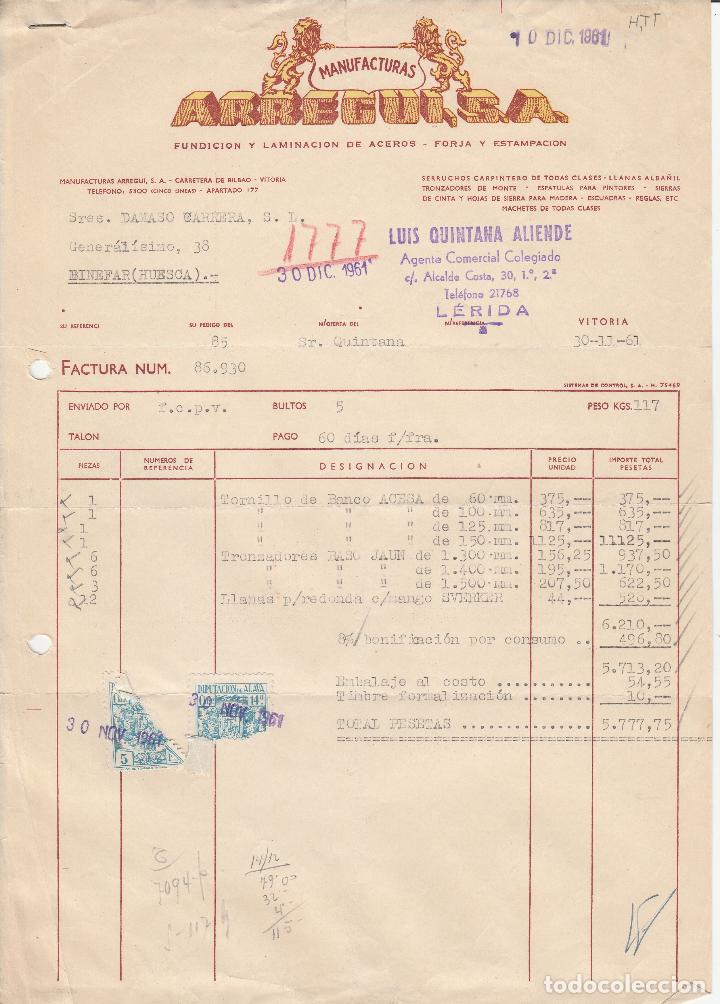 H,TT
10 DIC. 1961
MANUFACTURAS
ARREGUI, S.A.
FUNDICION Y LAMINACION DE ACEROS - FORJA Y ESTAMPACION
MANUFACTURAS ARREGUI, S. A. - CARRETERA DE BILBAO - VITORIA
TELEFONO: 5300 (CINCO LINEAS) - APARTADO 177
SERRUCHOS CARPINTERO DE TODAS CLASES - LLANAS ALBAÑIL
TRONZADORES DE MONTE - ESPATULAS PARA PINTORES - SIERRAS
DE CINTA Y HOJAS DE SIERRA PARA MADERA - ESCUADRAS - REGLAS, ETC
MACHETES DE TODAS CLASES
Sres. DAMASO CARRERA, S. L.
Generálisimo, 38
BINEFAR(HUESCA).-
1777
30 DIC. 1961
LUIS QUINTANA ALIENDE
Agente Comercial Colegiado
c/. Alcalde Costa, 30, 1.º, 2.ª
Teléfono 21768
LÉRIDA
SU REFERENCI SU PEDIGO DEL N/OFERTA DEL N/REFERENCIA VITORIA
85 Sr. Quintana 30-11-61
FACTURA NUM. 86.930
SISTEMAS DE CONTROL, S. A. - M. 75469
ENVIADO POR f.c.p.v. BULTOS 5 PESO KGS. 117
TALON PAGO 60 días f/fra.
PIEZAS NUMEROS DE REFERENCIA DESIGNACION PRECIO UNIDAD IMPORTE TOTAL PESETAS
1 Tornillo de Banco ACESA de 60 mm. 375,-- 375,--
1 " " " de 100 mm. 635,-- 635,--
1 " " " de 125 mm. 817,-- 817,--
1 " " " de 150 mm. 1125,-- 11125,--
6 Tronzadores RASO JAUN de 1.300 mm. 156,25 937,50
6 " " " de 1.400 mm. 195,-- 1.170,--
3 " " " de 1.500 mm. 207,50 622,50
12 Llanas p/redonda c/mango SVERKER 44,-- 520,--
6.210,--
8% bonificación por consumo .. 496,80
5.713,20
Embalaje al costo .......... 54,55
Timbre formalización ....... 10,--
TOTAL PESETAS .............. 5.777,75
DIPUTACION DE ALAVA
14ª
30 NOV. 1961
30 NOV. 1961
5
14/12
7094
79.00
32